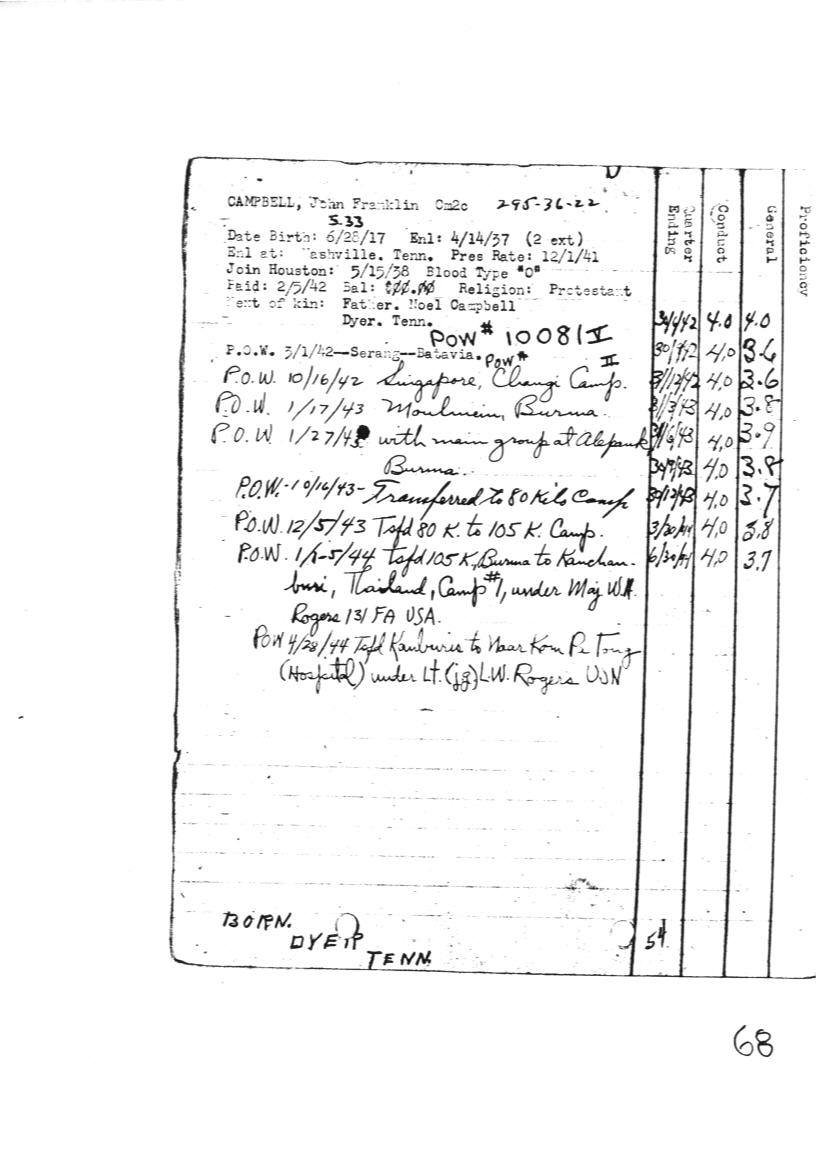 CAMPBELL, John Franklin Cm2c 295-36-22
S.33
Date Birth: 6/28/17 Enl: 4/14/37 (2 ext)
Enl at: Nashville. Tenn. Pres Rate: 12/1/41
Join Houston: 5/15/38 Blood Type "O"
Paid: 2/5/42 Bal: Religion: Protestant
Next of kin: Father. Noel Campbell
Dyer. Tenn.
POW# 10081 V
P.O.W. 3/1/42--Serang--Batavia. POW# II
P.O.W. 10/16/42 Singapore, Changi Camp.
P.O.W. 1/17/43 Moulmein, Burma.
P.O.W. 1/27/43 with main group at Alepauk
Burma.
P.O.W.-10/16/43-Transferred to 80 Kilo Camp
P.O.W. 12/5/43 Tsfd 80 K. to 105 K. Camp.
P.O.W. tsfd 105 K, Burma to Kanchan-
buri, Thailand, Camp #1, under Maj W.H.
Rogers 131 FA USA.
POW 4/28/44 Tsfd Kanburis to Naar Kom Pe Tong
(Hospital) under Lt. (jg) L.W. Rogers USN
BORN.
DYER
TENN.
Quarter Ending Conduct General Proficiency
4.0 4.0
4.0 3.6
31/12/42 4.0 3.6
31/3/43 4.0 3.8
4.0 3.9
30/9/43 4.0 3.8
4.0 3.7
3/30/44 4.0 3.8
6/30/44 4.0 3.7
54
68